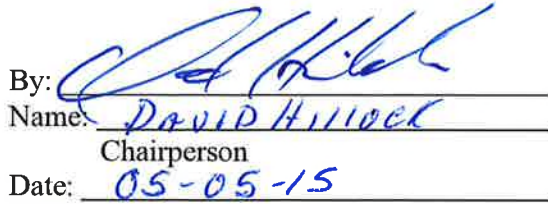 By:
Name: DAVID HILLOCK
Chairperson
Date: 05-05-15